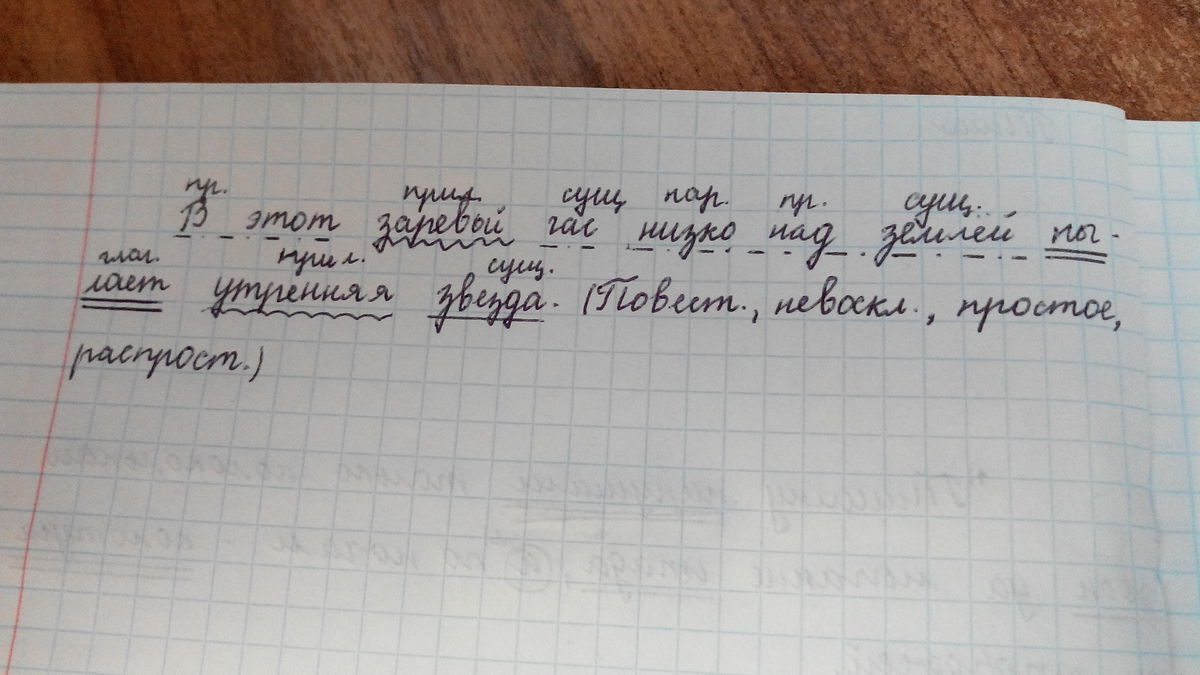 пр. прил. сущ нар. пр. сущ.
В этот заревый час низко над землей пы-
глаг. прил. сущ.
лает утренняя звезда. (Повест., невоскл., простое,
распрост.)